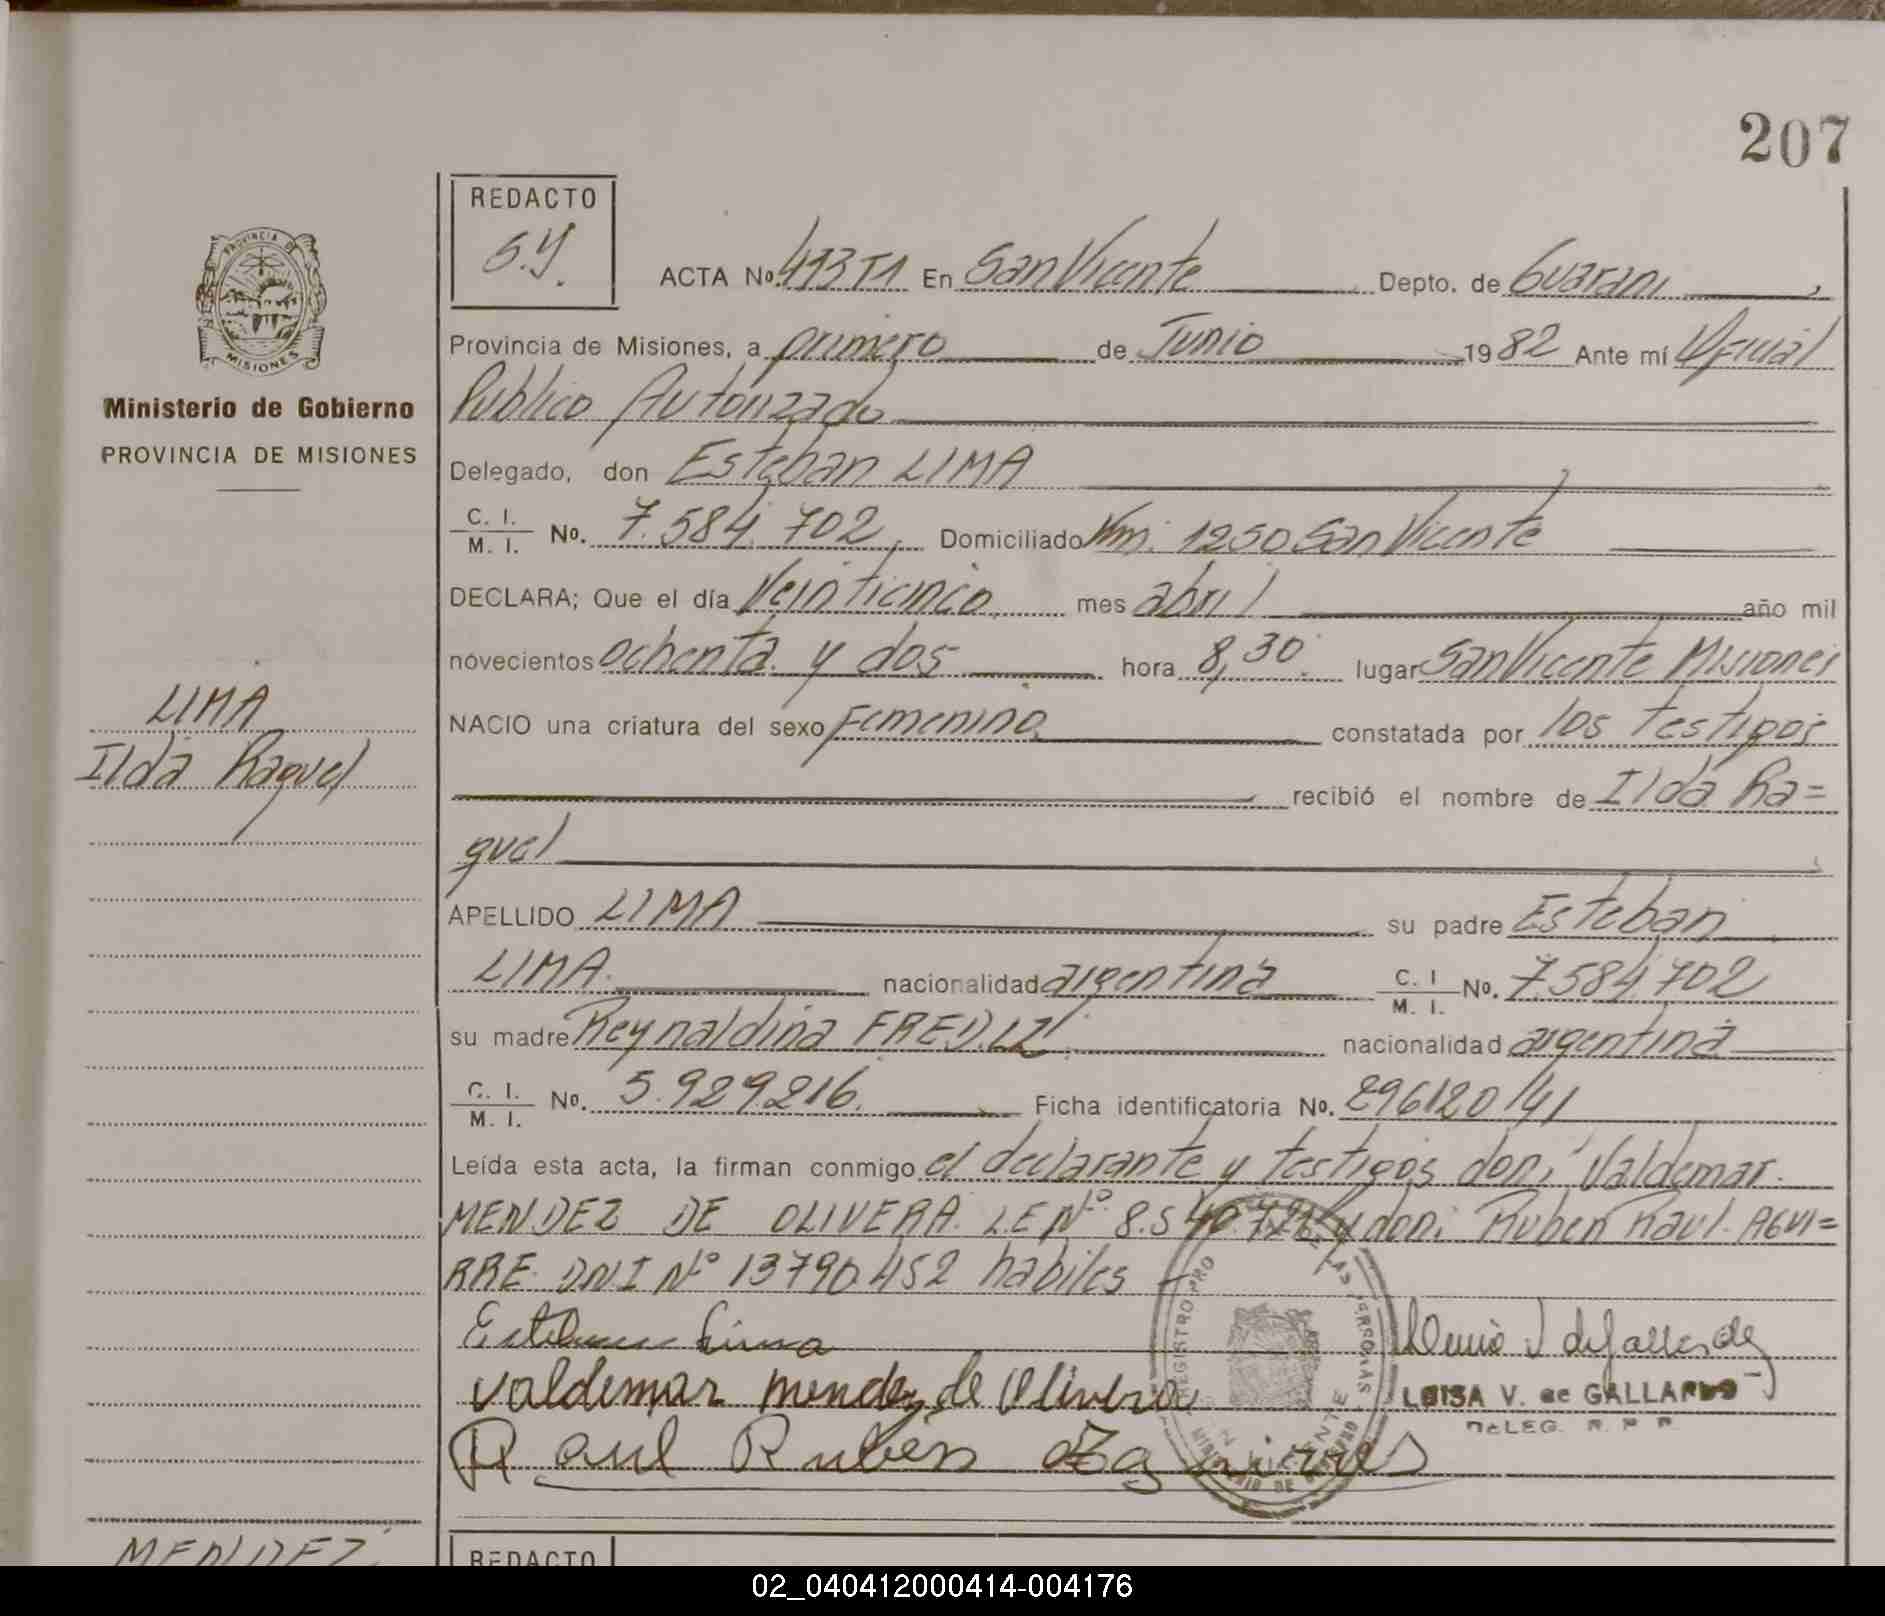 207
REDACTO
S.Y.
ACTA No. 413 T1 En San Vicente Depto. de Guarani,
Provincia de Misiones, a primero de Junio 1982 Ante mí Oficial
Publico Autorizado
Delegado, don Esteban LIMA,
C. I.
M. I. No. 7.584.702, Domiciliado Km. 1250 San Vicente
DECLARA; Que el día Veinticinco mes abril año mil
novecientos ochenta y dos hora 8,30. lugar San Vicente Misiones
NACIO una criatura del sexo Femenino constatada por los testigos
recibió el nombre de Ilda Ra=
quel
APELLIDO LIMA su padre Esteban
LIMA. nacionalidad argentina C. I M. I. No. 7.584.702
su madre Reynaldina nacionalidad argentina
C. I.
M. I. No. 5.929.216. Ficha identificatoria No. 296120/41
Leída esta acta, la firman conmigo el declarante y testigos don: Valdemar.
MENDEZ DE OLIVERA. L.E Nº 8.540. y don: Ruben Raul. AGUI=
RRE. DNI Nº 13790.452 habiles
Esteban Lima
Valdemar mendez de Olivera
Raul Ruben
LUISA V. de GALLARDO
DELEG. R. P. P.
PROVINCIA DE
MISIONES
Ministerio de Gobierno
PROVINCIA DE MISIONES
LIMA
Ilda Raquel
MENDEZ
REGISTRO PRO
DE LAS PERSONAS
MINISTERIO DE GOBIERNO
REDACTO
02_040412000414-004176